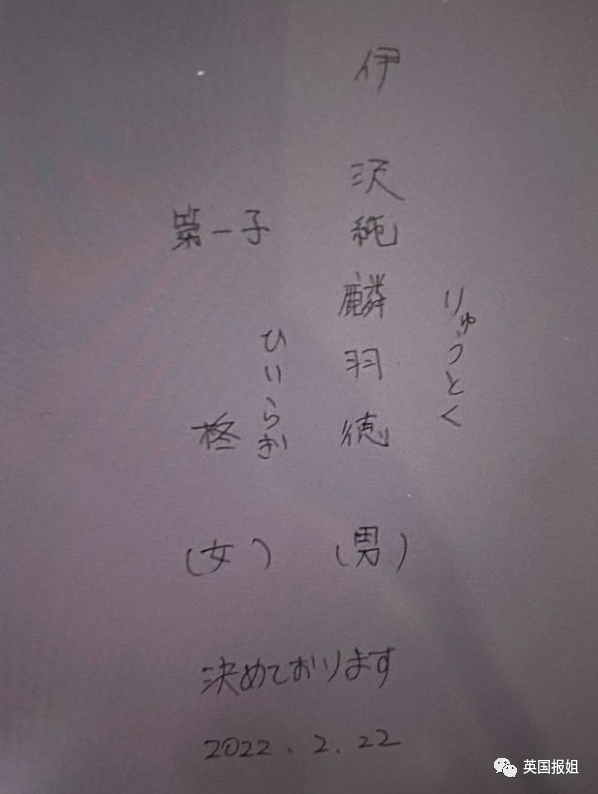 りゅうとく
伊沢純麟羽徳(男)
ひいらぎ
第一子
柊(女)
決めております
2022.2.22
英国报姐